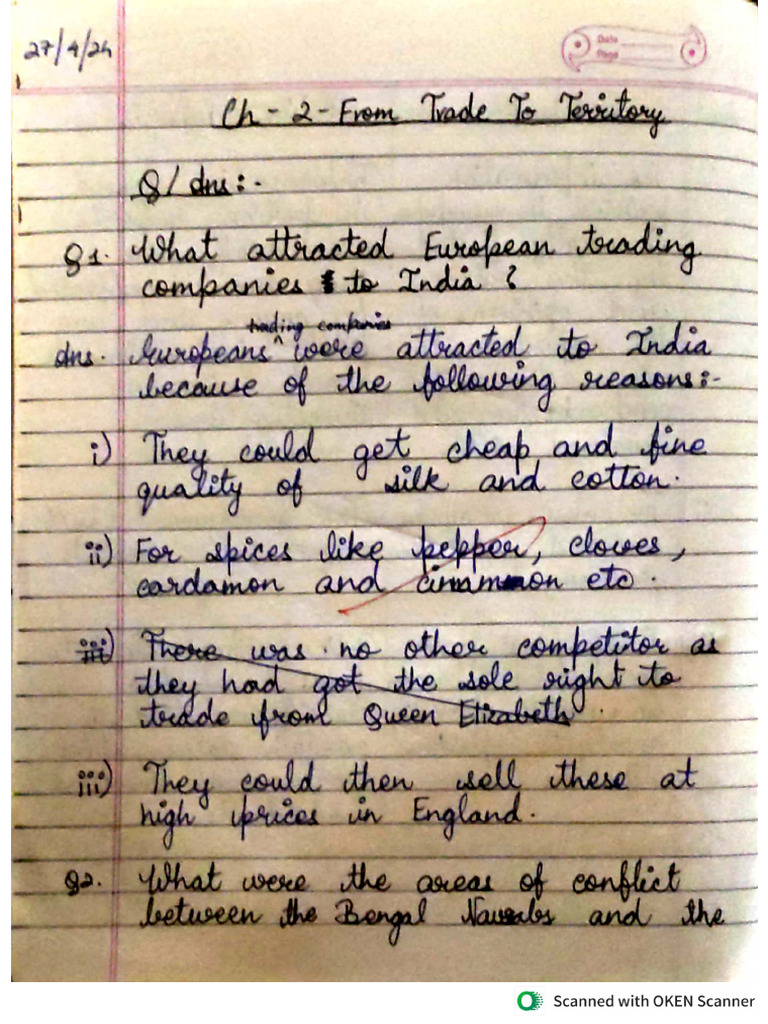 27/4/24
Date
Page
Ch - 2 - From Trade To Territory
Q/Ans:-
Q1. What attracted European trading
companies to India ?
trading companies
Ans. Europeans ^ were attracted to India
because of the following reasons:-
i) They could get cheap and fine
quality of silk and cotton.
ii) For spices like pepper, cloves,
cardamon and cinammon etc.
iii) There was no other competitor as
they had got the sole right to
trade from Queen Elizabeth.
iii) They could then sell these at
high prices in England.
Q2. What were the areas of conflict
between the Bengal Nawabs and the
Scanned with OKEN Scanner